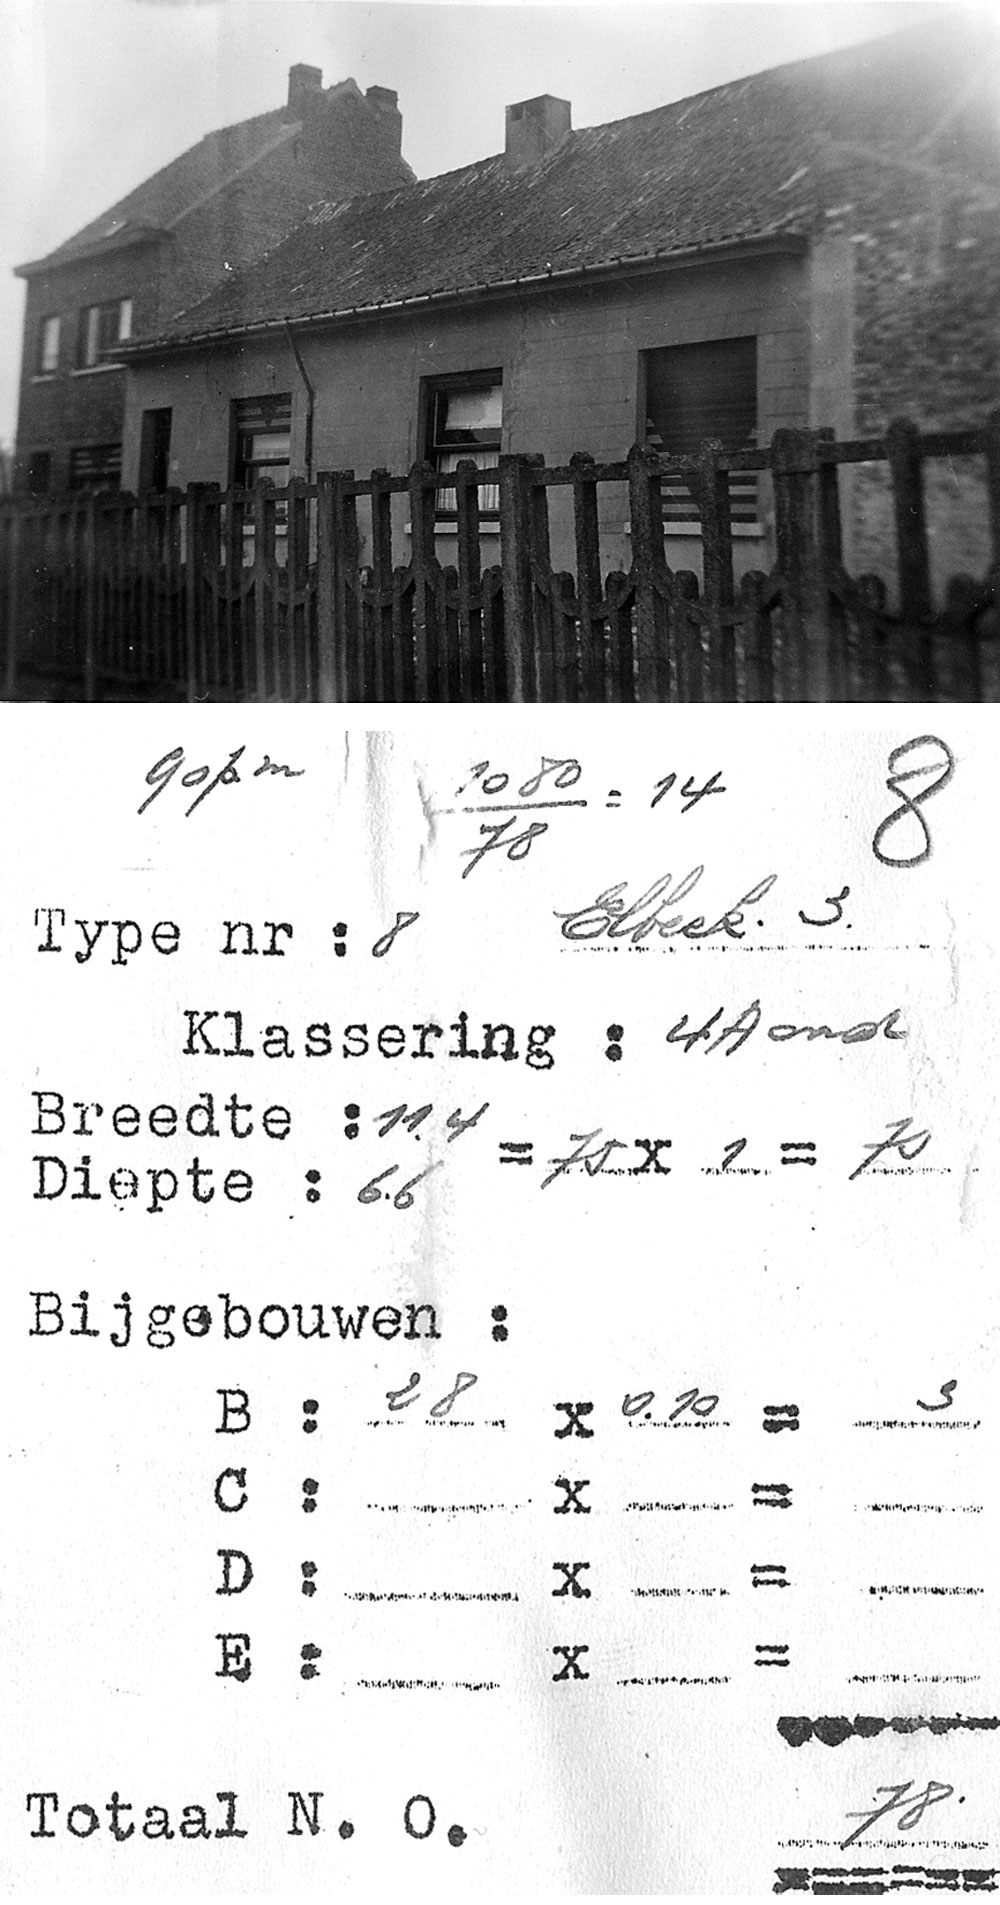 90 p.m 1080 / 78 = 14 8
Type nr : 8 Elbeek. 3.
Klassering : 4A ond
Breedte : 11.4 = 75 x 1 = 75
Diepte : 6.6
Bijgebouwen :
B : 28 x 0.10 = 3
C : x =
D : x =
E : x =
Totaal N. O. 78.